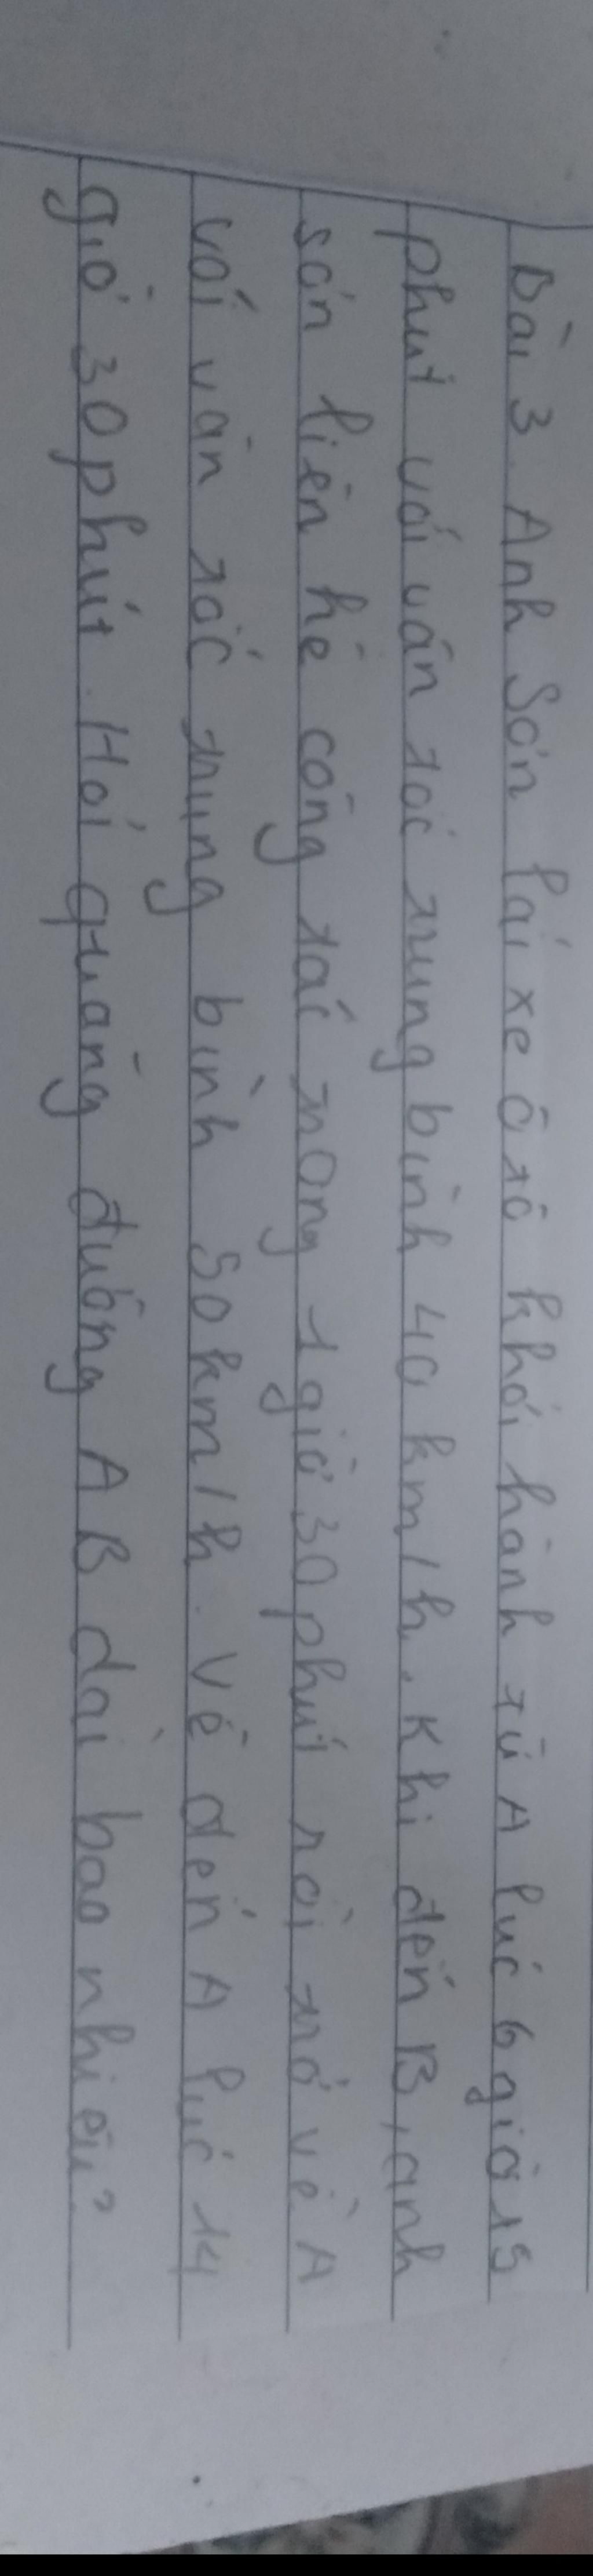 Bài 3. Anh Sơn lái xe ô tô khởi hành từ A lúc 6 giờ 15
phút với vận tốc trung bình 40 km/h. Khi đến B, anh
sơn liên hệ công tác trong 1 giờ 30 phút rồi trở về A
với vận tốc trung bình 50 km/h. Về đến A lúc 14
giờ 30 phút. Hỏi quãng đường AB dài bao nhiêu?